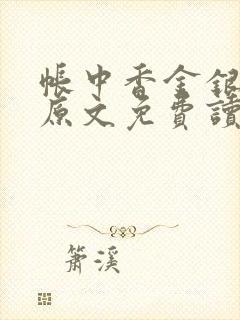 帳中香金銀
原文免費讀
簫溪